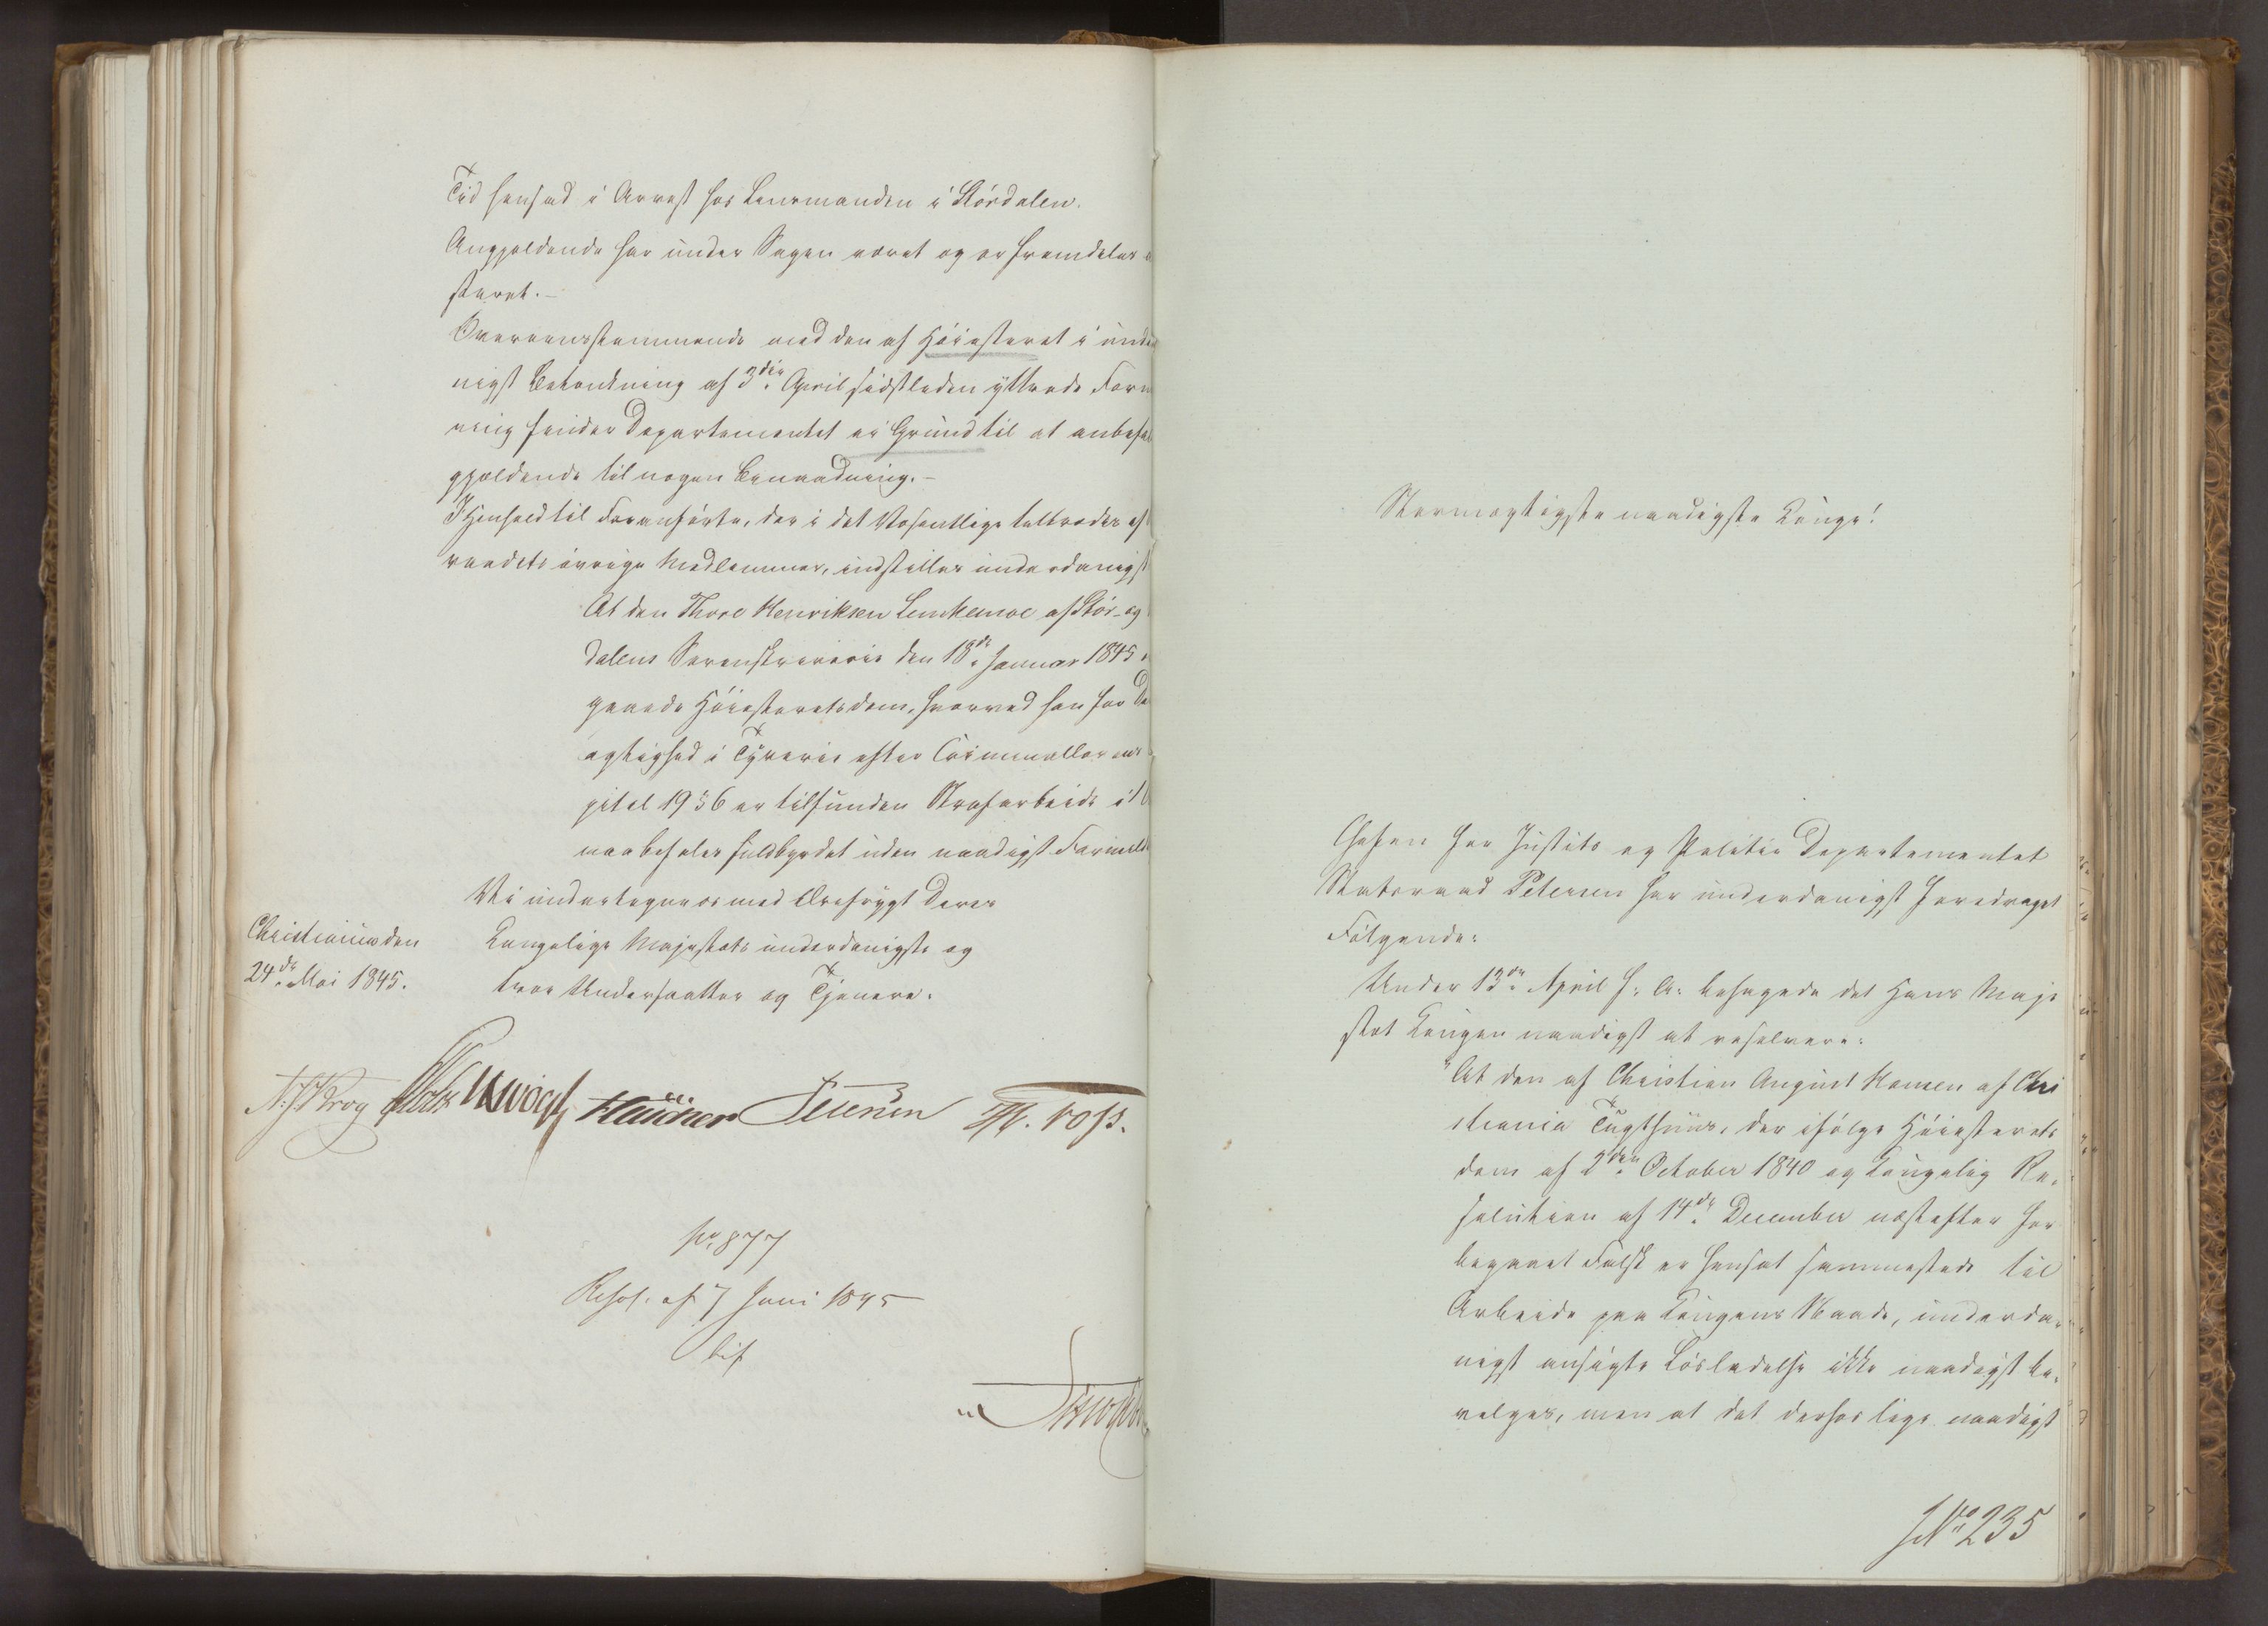 Tid hensad i Arrest hos Lensmanden i Stördalen.
Angjeldende har under Sagen været og er fremdeles
steret.-
Overeensstemmende med den af Höiesteret i unde
nigst Betænkning af 3die April sidstleden yttrede For
ning finder Departementet ei Grund til at anbefal
gjældende til nogen Benaadning.-
I Henhold til Foranförte, der i det Væsentlige tiltrædes af
raadets övrige Medlemmer, indstilles underdanigst
At den Thore Henriksen Lemkemoe af Stör- og
dalens Sorenskriverie den 18de Januar 1845
gaaede Höiesteretsdom, hvorved han for De
agtighed i Tyverie efter Criminallovens
pitel 19 § 6 er tilfunden Strafarbeide i 1
maa befales fuldbyrdet uden naadigst Formild
Vi undertegne os med Ærefrygt Deres
Christiania den
24de Mai 1845.
Kongelige Majestæts underdanigste og
troe Undersaatter og Tjenere.
Krog Motzfeldt Vogt Petersen
No 877
Resol. af 7 Juni 1845
bif
Stormægtigste naadigste Konge!
Chefen for Justits og Politie Departementet
Statsraad Petersen har underdanigst foredraget
Fölgende:
Under 13de April f: A: behagede det Hans Maje
stæt Kongen naadigst at resolvere:
"At den af Christian August Hansen af Chri
stiania Tugthuus, der ifölge Höiesterets
dom af 2den October 1840 og Kongelig Re-
solution af 14de December næstefter for
begaaet Falsk er hensat sammesteds til
Arbeide paa Kongens Naade, underda-
nigst ansögte Lösladelse ikke naadigst be-
vilges, men at det derhos lige naadigst
No 235